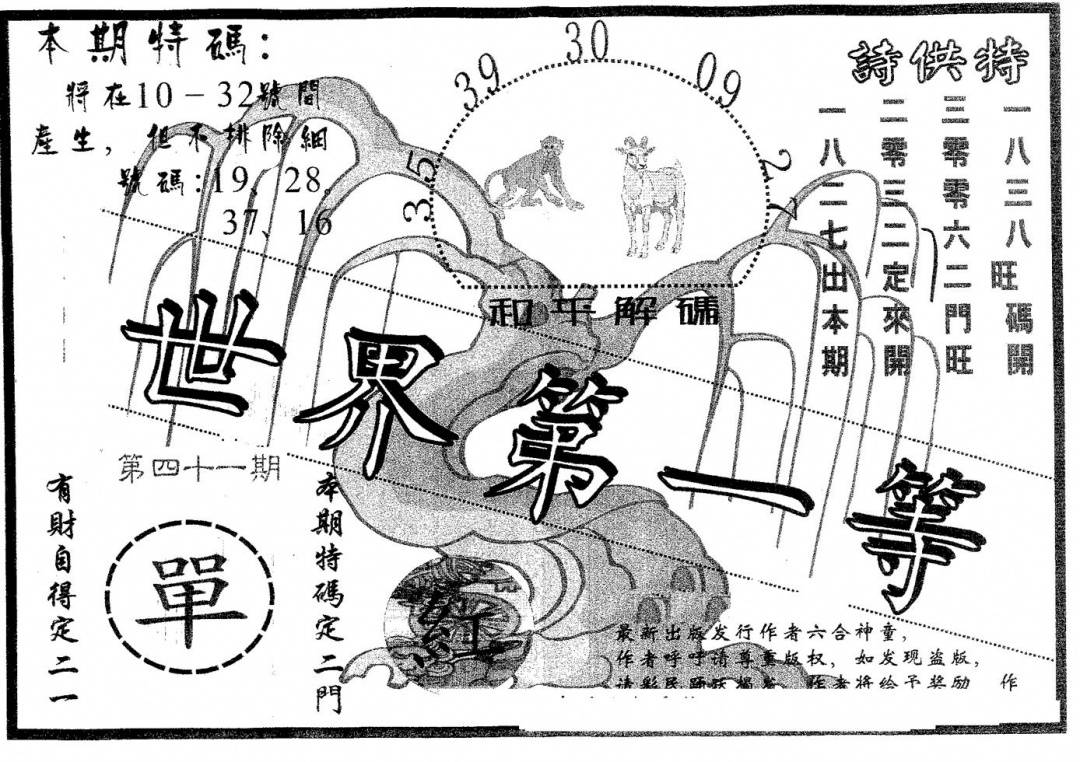 本期特碼:
將在10－32號間
產生，但不排除細
號碼:19、28。
37、16
35
39
30
09
27
和平解碼
特供詩
一八三八旺碼開
三零零六二門旺
二零三二定來開
一八二七出本期
世界第一等
第四十一期
本期特碼定二門
單
有財自得定二一
紅
最新出版发行作者六合神童，
作者呼吁请尊重版权，如发现盗版，
请彩民踊跃揭发 作者将给予奖励 作